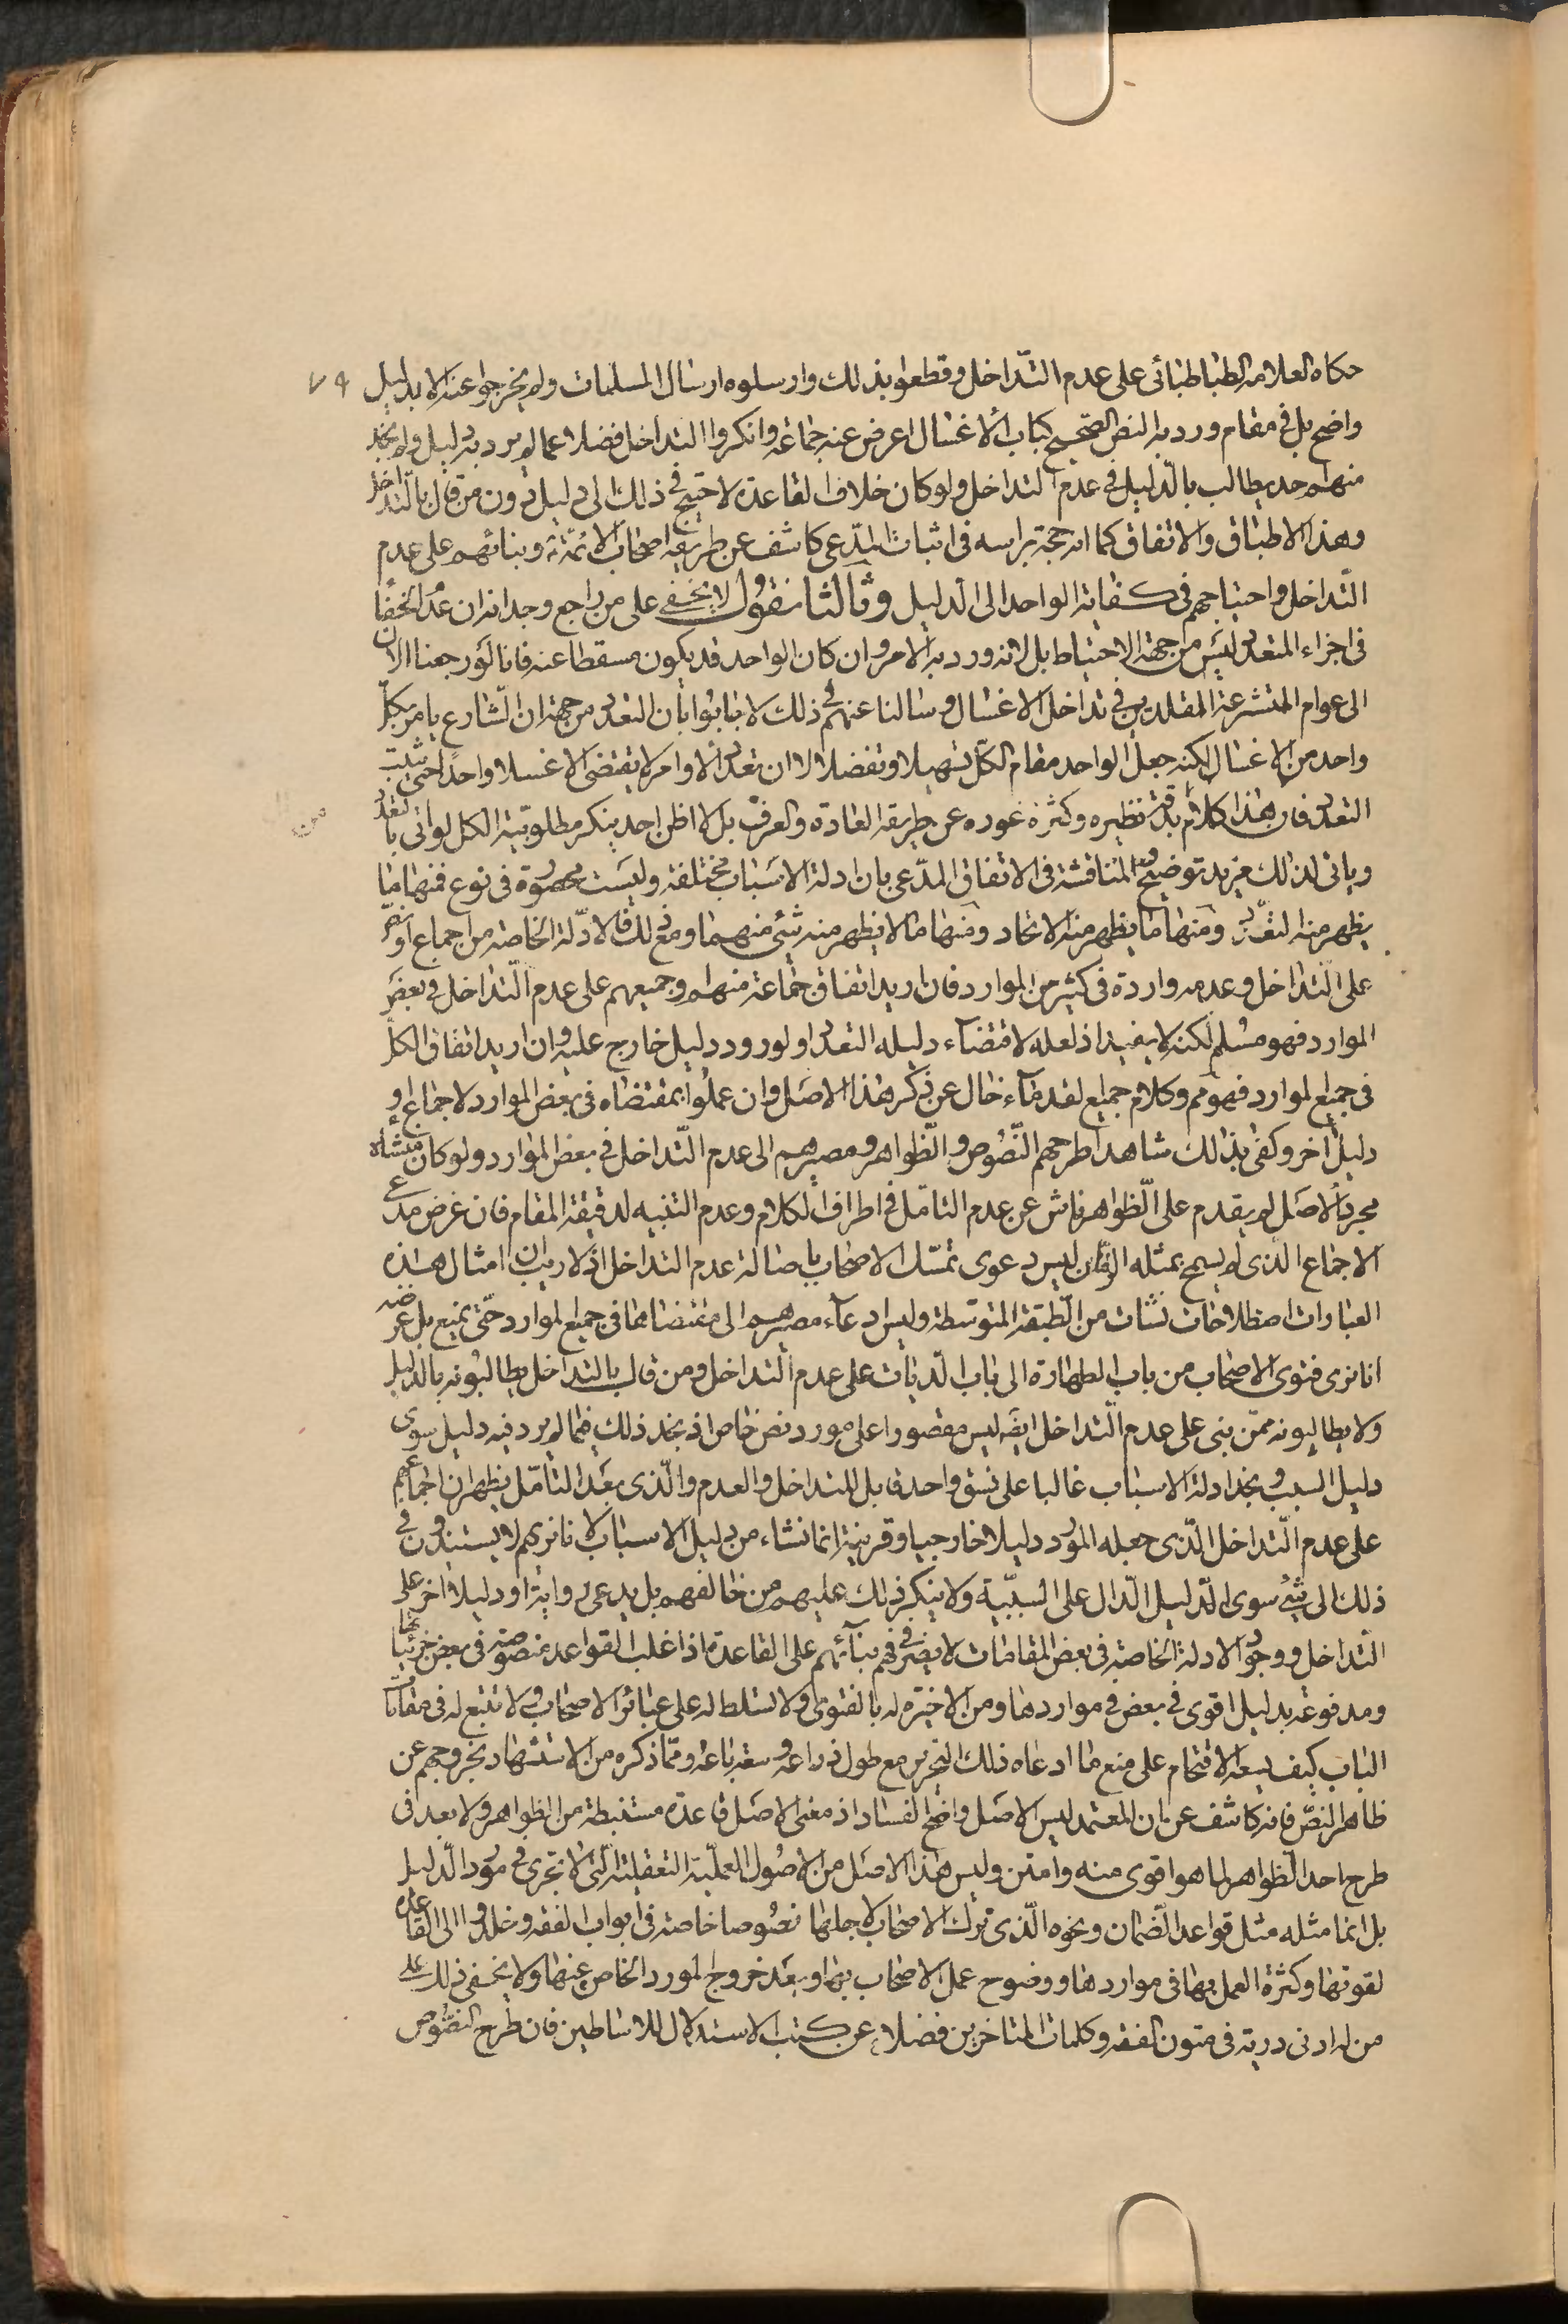 حكاه العلامة الطباطبائى على عدم التّداخل وقطعوا بذلك وارسلوه ارسال المسلمات ولم يخرجوا عنه الا بدليل ٧٩
واضح بل فى مقام ورد به النص الصّحيح كباب الأغسال اعرض عنه جماعة وانكروا التداخل فضلا عما لم يرد به دليل ولم نجد
منهم احد يطالب بالدّليل فى عدم التداخل ولو كان خلاف القاعدة لاحتيج فى ذلك الى دليل دون من قال بالتّداخل
وهذا الاطباق والاتفاق كما انه حجة برأسه فى اثبات المدّعى كاشف عن طريقة اصحاب الائمّة وبنائهم على عدم
التّداخل واحتياجهم فى كفاية الواحد الى الدّليل وثالثا نقول لا يخفى على من راجع وجدانه ان عدم اكتفائنا
فى اجزاء المتعدد ليس من جهة الاحتياط بل لانه ورد به الامر وان كان الواحد قد يكون مسقطا عنه فانا لو رجعنا الان
الى عوام المتشرعة المقلدين فى تداخل الاغسال وسالنا عنهم فى ذلك لاجابوا بان التعدد من جهة ان الشّارع يامر بكلّ
واحد من الاغسال لكنه جعل الواحد مقام الكلّ تسهيلا وتفضلا لا ان تعدد الاوامر لا يقتضى الا غسلا واحدا حتى يثبت
التعدد فان هذا كلام بدقة نظيره وكثرة غوره عن طريقة العادة والعرف بل لا اظن احد ينكر مطلوبيّة الكل لو اتى بالتعدد
وياتى لذلك مزيد توضيح والمناقشة فى الاتفاق المدّعى بان ادلة الاسباب مختلفة وليست محصورة فى نوع فمنها ما
يظهر منه التعدّد ومنها ما يظهر منه الاتحاد ومنها ما لا يظهر منه شئ منهما ومع ذلك فالادّلة الخاصة من اجماع او نصّ
على التّداخل وعدمه واردة فى كثير من الموارد فان اريد اتفاق جماعة منهم او جميعهم على عدم التّداخل فى بعض
الموارد فهو مسلم لكنه لا يفيد اذ لعله لاقتضاء دليله التعدد او لورود دليل خارج عليه وان اريد اتفاق الكلّ
فى جميع الموارد فهو مم وكلام جميع القدماء خال عن ذكر هذا الاصل وان عملوا بمقتضاه فى بعض الموارد لاجماع او
دليل آخر وكفى بذلك شاهدا طرحهم النّصوص والظّواهر ومصيرهم الى عدم التّداخل فى بعض الموارد ولو كان منشأه
مجرد الاصل لم يقدم على الظّواهر ناش عن عدم التامّل فى اطراف الكلام وعدم التنبيه لدقيقة المقام فان غرض مدعى
الاجماع الّذى لم يسمح بمثله الزّمان ليس دعوى تمسّك الاصحاب باصالة عدم التداخل اذ لا ريب ان امثال هذه
العبارات اصطلاحات نشات من الطّبقة المتوسّطة وليس ادعاء مصيرهم الى مقتضاها فى جميع الموارد حتّى يمنع بل غرضه
انا نرى فتوى الاصحاب من باب الطهارة الى باب الدّيات على عدم التداخل ومن قال بالتداخل يطالبونه بالدّليل
ولا يطالبونه ممّن بنى على عدم التّداخل ايضا ليس مقصورا على مورد نص خاص اذ نجد ذلك فيما لم يرد فيه دليل سوى
دليل السبب ونجد ادلة الاسباب غالبا على نسق واحد قابل للتداخل والعدم والّذى بعد التأمّل يظهر ان اجماعهم
على عدم التّداخل الّذى جعله المورد دليلا خارجيا وقرينة انما نشاء من دليل الاسباب لانا نريهم لا يستندون فى
ذلك الى شئ سوى الدّليل الدّال على السببيّة ولا ينكر ذلك عليهم من خالفهم بل يدعى رواية او دليلا اخر على
التّداخل ووجود الادلة الخاصة فى بعض المقامات لا يضر فى فهم بنائهم على القاعدة اذ اغلب القواعد منصوصة فى بعض جزئياتها
ومدفوعة بدليل اقوى فى بعض فى مواردها ومن لا خبرة له بالفتوى ولا تسلط له على عبائر الاصحاب ولا تتبع له فى مقامات
الباب كيف يسعه الاقتحام على منع ما ادعاه ذلك النحرير مع طول ذراعه وسعة باعه وممّا ذكره من الاستشهاد بخروجهم عن
ظاهر النصّ فانه كاشف عن ان المعتمد ليس الاصل واضح الفساد اذ معنى الاصل قاعدة مستنبطة من الظواهر ولا بعد فى
طرح احد الظّواهر لما هو اقوى منه وامتن وليس هذا الاصل من الاصول العمليّة التعقلية الّتى لا تجرى فى مورد الدّليل
بل انما مثله مثل قواعد الضّمان ونحوه الّذى ترك الاصحاب لاجلها نصوصا خاصة فى ابواب الفقه وخلدوا الى القاعدة
لقوتها وكثرة العمل بها فى مواردها ووضوح عمل الاصحاب بها وبعد خروج المورد الخاص عنها ولا يخفى ذلك على
من له ادنى دربة فى متون الفقه وكلمات المتاخرين فضلا عن كتب الاستدلال للاساطين فان طرح النصّوص